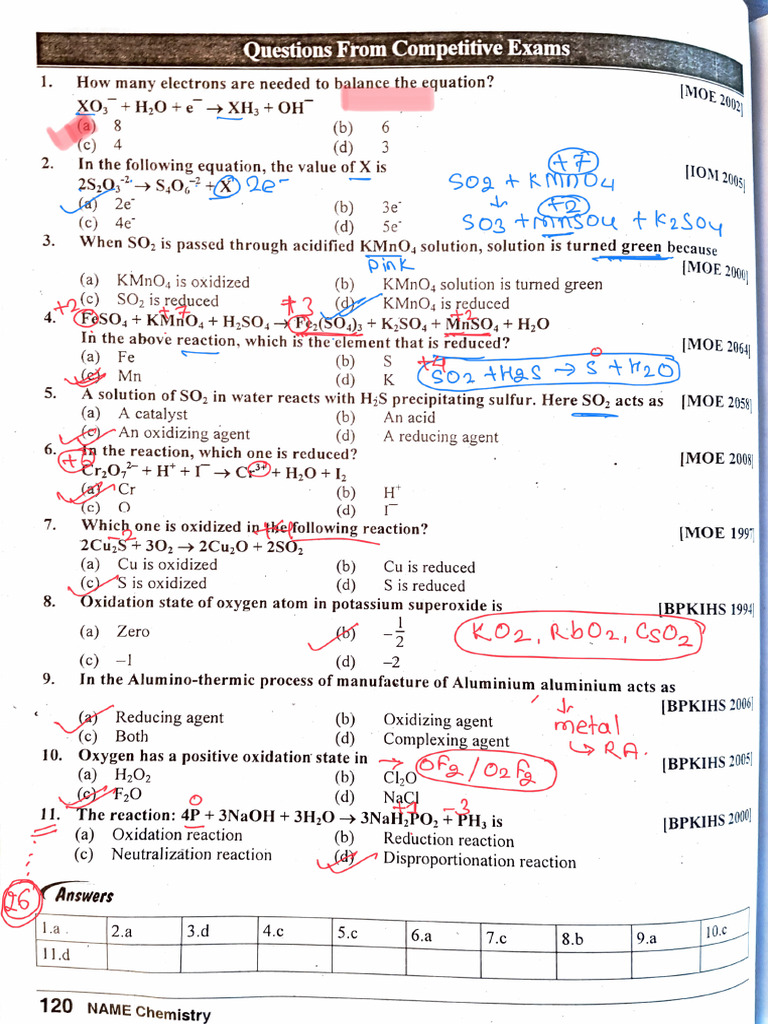 Questions From Competitive Exams
1. How many electrons are needed to balance the equation? [MOE 2002]
XO₃⁻ + H₂O + e⁻ → XH₃ + OH⁻
(a) 8 (b) 6
(c) 4 (d) 3
2. In the following equation, the value of X is [IOM 2005]
2S₂O₃⁻² → S₄O₆⁻² + X 2e⁻
(a) 2e⁻ (b) 3e⁻
(c) 4e⁻ (d) 5e⁻
+7
SO2 + KMnO4
↓ +2
SO3 + MnSO4 + K2SO4
3. When SO₂ is passed through acidified KMnO₄ solution, solution is turned green because [MOE 2000]
pink
(a) KMnO₄ is oxidized (b) KMnO₄ solution is turned green
(c) SO₂ is reduced (d) KMnO₄ is reduced
+2 +7 +3 +2
4. FeSO₄ + KMnO₄ + H₂SO₄ → Fe₂(SO₄)₃ + K₂SO₄ + MnSO₄ + H₂O
In the above reaction, which is the element that is reduced? [MOE 2064]
(a) Fe (b) S
(c) Mn (d) K
+4 0
SO2 + H2S → S + H2O
5. A solution of SO₂ in water reacts with H₂S precipitating sulfur. Here SO₂ acts as [MOE 2058]
(a) A catalyst (b) An acid
(c) An oxidizing agent (d) A reducing agent
6. In the reaction, which one is reduced? [MOE 2008]
Cr₂O₇²⁻ + H⁺ + I⁻ → Cr³⁺ + H₂O + I₂
(a) Cr (b) H⁺
(c) O (d) I⁻
7. Which one is oxidized in the following reaction? [MOE 1997]
-2 +4
2Cu₂S + 3O₂ → 2Cu₂O + 2SO₂
(a) Cu is oxidized (b) Cu is reduced
(c) S is oxidized (d) S is reduced
8. Oxidation state of oxygen atom in potassium superoxide is [BPKIHS 1994]
(a) Zero (b) −1/2
(c) −1 (d) −2
KO2, RbO2, CsO2
9. In the Alumino-thermic process of manufacture of Aluminium aluminium acts as [BPKIHS 2006]
(a) Reducing agent (b) Oxidizing agent
(c) Both (d) Complexing agent
↓
metal
→ RA.
10. Oxygen has a positive oxidation state in → OF2 / O2F2 [BPKIHS 2005]
(a) H₂O₂ (b) Cl₂O
(c) F₂O (d) NaCl
0 +1 -3
11. The reaction: 4P + 3NaOH + 3H₂O → 3NaH₂PO₂ + PH₃ is [BPKIHS 2000]
(a) Oxidation reaction (b) Reduction reaction
(c) Neutralization reaction (d) Disproportionation reaction
26
Answers
1.a 2.a 3.d 4.c 5.c 6.a 7.c 8.b 9.a 10.c
11.d
120 NAME Chemistry